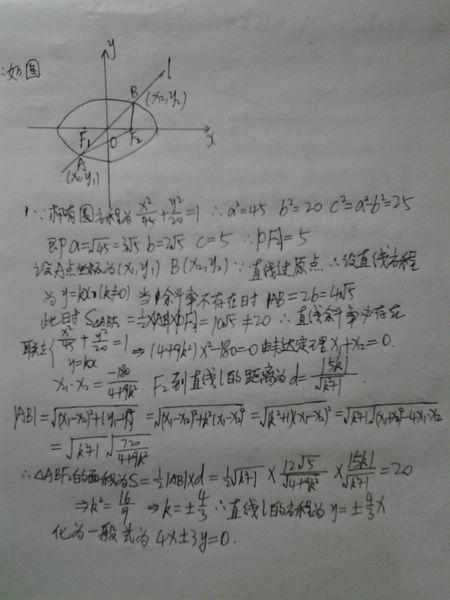 ∵如图
y
l
B
(x₂,y₂)
F₁
O
F₂
x
A
(x₁,y₁)
1∵椭圆方程为x²/45+y²/20=1 ∴a²=45 b²=20 c²=a²-b²=25
即a=√45=3√5 b=2√5 c=5 ∴|OF₂|=5
设A点坐标为(x₁,y₁) B(x₂,y₂)∵直线过原点∴设直线方程
为y=kx(k≠0) 当斜率不存在时 AB=2b=4√5
此时S△ABF₂=½×|AB|×|OF₂|=10√5≠20 ∴直线斜率存在
联立{x²/45+y²/20=1
y=kx ⇒(4+9k²)x²-180=0由韦达定理x₁+x₂=0.
x₁·x₂=-180/4+9k² F₂到直线l的距离为d=|5k|/√k²+1
|AB|=√(x₁-x₂)²+(y₁-y₂)²=√(x₁-x₂)²+k²(x₁-x₂)²=√(k²+1)(x₁-x₂)²=√k²+1√(x₁+x₂)²-4x₁·x₂
=√k²+1√720/4+9k²
∴△ABF₂的面积为S=½|AB|×d=½√k²+1×12√5/√4+9k²×|5k|/√k²+1=20
⇒k²=16/9⇒k=±4/3∴直线l的方程为y=±4/3x
化为一般式为4x±3y=0.